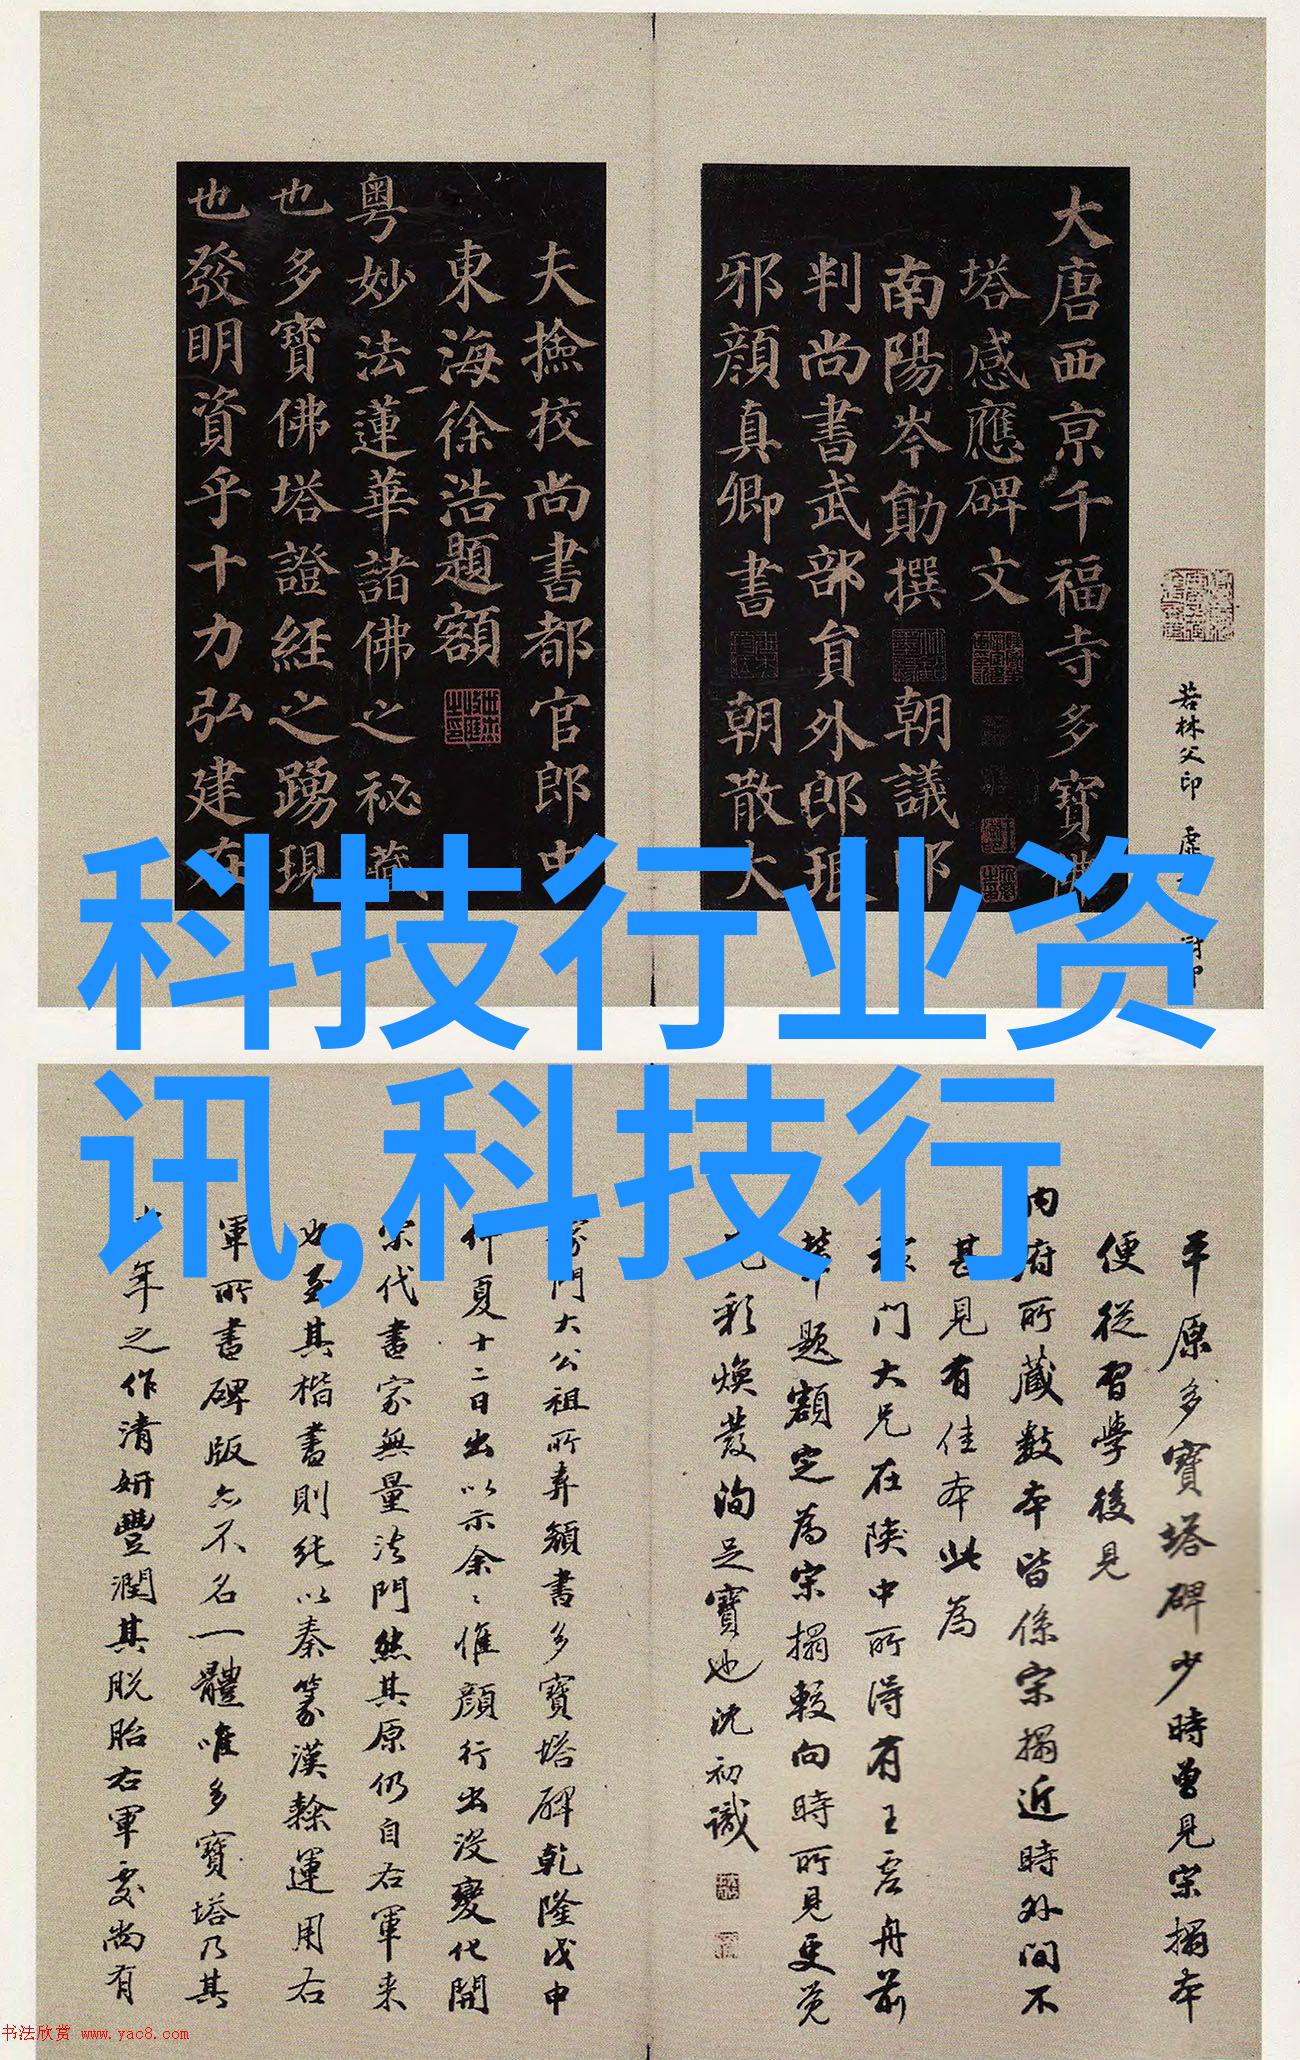 大唐西京千福寺多寶佛
塔感應碑文
南陽岑勛撰 朝議郎
判尚書武部員外郎琅
邪顏真卿書 朝散大
夫撿挍尚書都官郎中
東海徐浩題額
粵妙法蓮華諸佛之祕藏
也多寶佛塔證經之踴現
也發明資乎十力弘建在
若林父印
科技行业资
讯,科技行
平原多寶塔碑少時曾見宋搨本
便從習學後見
内府所藏數本皆係宋搨近時外間不
甚見有佳本此為
門大兄在陝中所得有王虛舟前
輩題額定為宋搨較向時所見更覺
彩煥發洵足寶也沈初識
門大公祖所弆顏書多寶塔碑乾隆戊申
仲夏十二日出以示余惟顏行出没變化開
宋代書家無量法門然其原仍自右軍来
也至其楷書則純以秦篆漢隸運用右
軍所書碑版亦不名一體唯多寶塔乃其
年之作清妍豐潤其脱胎右軍處尚有
书法欣赏 www.yac8.com